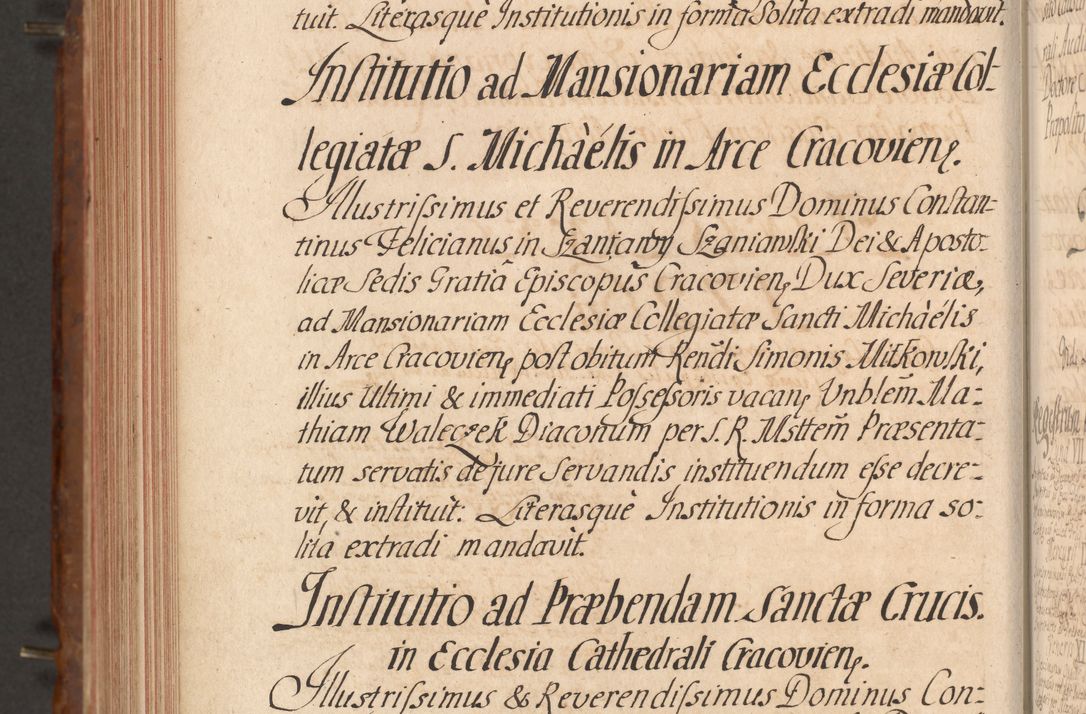 tuit. Literasquè Institutionis in forma Solita extradi mandavit.
Institutio ad Mansionariam Ecclesiæ Col-
legiatæ S. Michàélis in Arce Cracovien.
Illustrissimus et Reverendissimus Dominus Constan-
tinus Felicianus in Szaniawy Szaniawski Dei & Aposto-
licæ Sedis Gratiâ Episcopus Cracovien, Dux Severiæ,
ad Mansionariam Ecclesiæ Collegiatæ Sancti Michàélis
in Arce Cracovien, post obitum Rendi Simonis Mitkowski,
illius Ultimi & immediati Possessoris vacan, Vnblem Ma-
thiam Waleczek Diaconum per S. R. Msttem Præsenta-
tum servatis de jure Servandis instituendum esse decre-
vit, & instituit: Literasquè Institutionis in forma so-
lita extradi mandavit.
Institutio ad Præbendam Sanctæ Crucis.
in Ecclesia Cathedrali Cracovien.
Illustrissimus & Reverendissimus Dominus Con-